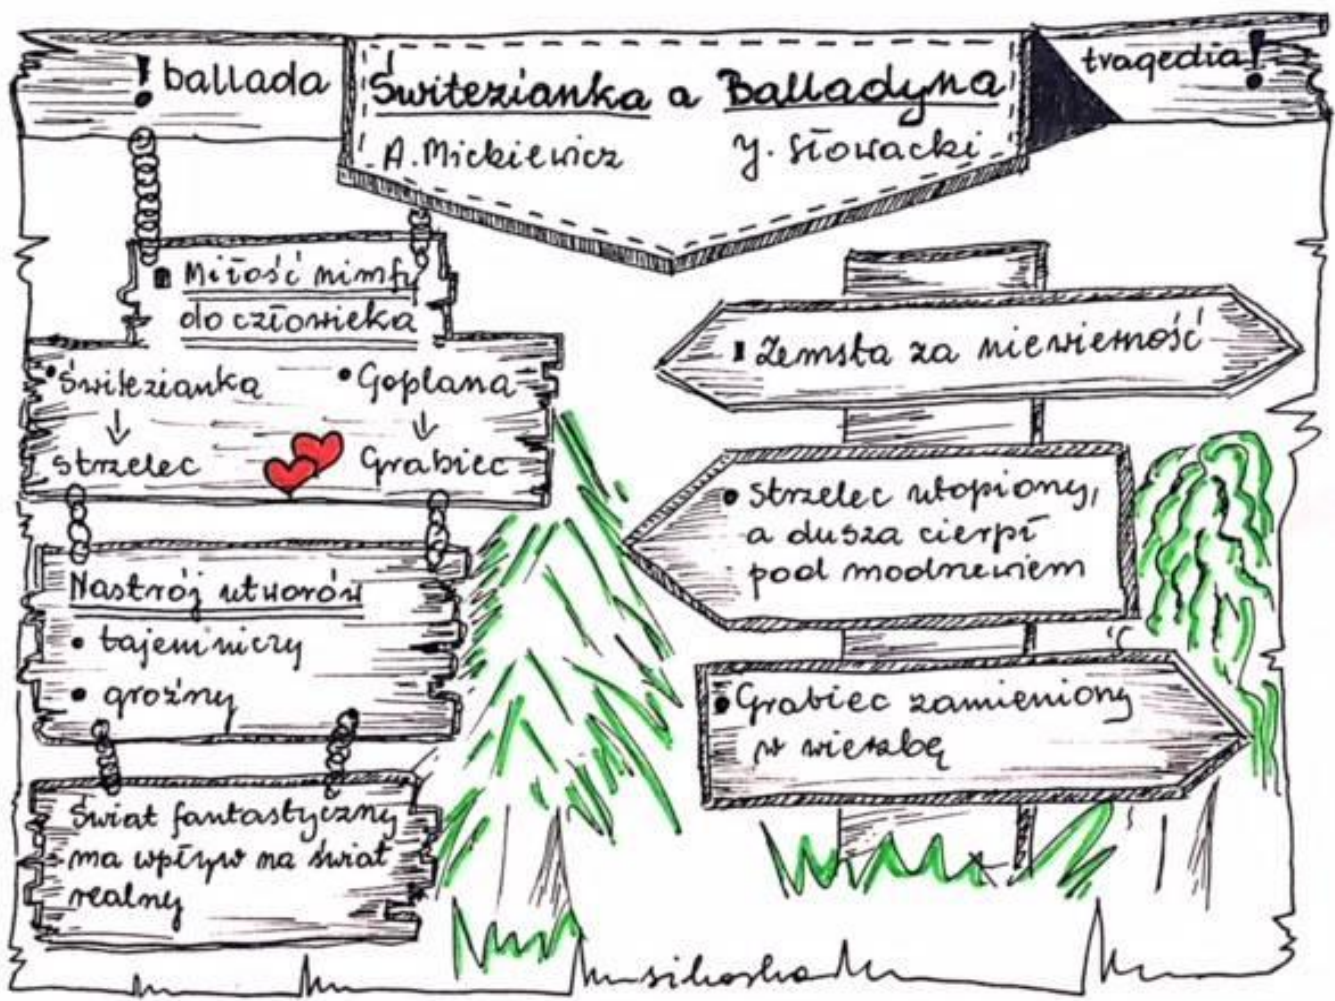 ! ballada
Świtezianka a Balladyna
tragedia!
A. Mickiewicz J. Słowacki
Miłość nimfy
do człowieka
• Świtezianka • Goplana
strzelec Grabiec
Nastrój utworów
• tajemniczy
• groźny
Świat fantastyczny
ma wpływ na świat
realny
Zemsta za niewierność
• Strzelec utopiony,
a dusza cierpi
pod modrzewiem
• Grabiec zamieniony
w wierzbę
sikorka